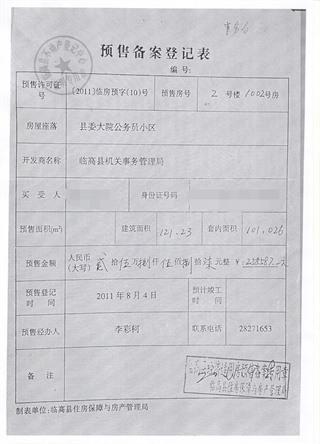 预售备案登记表
编号:
预售许可证号 [2011]临房预字(10)号 预售房号 2号楼1002号房
房屋座落 县委大院公务员小区
开发商名称 临高县机关事务管理局
买受人 身份证号码
预售面积(m²) 建筑面积 121.23 套内面积 101.026
预售金额 人民币(大写) 贰拾伍万捌仟伍佰捌拾柒元整 ¥258587.
预售登记时间 2011年8月4日 预计竣工时间
预售经办人 李彩柯 联系电话 28271653
备注
临高县住房保障与房产管理局
制表单位:临高县住房保障与房产管理局